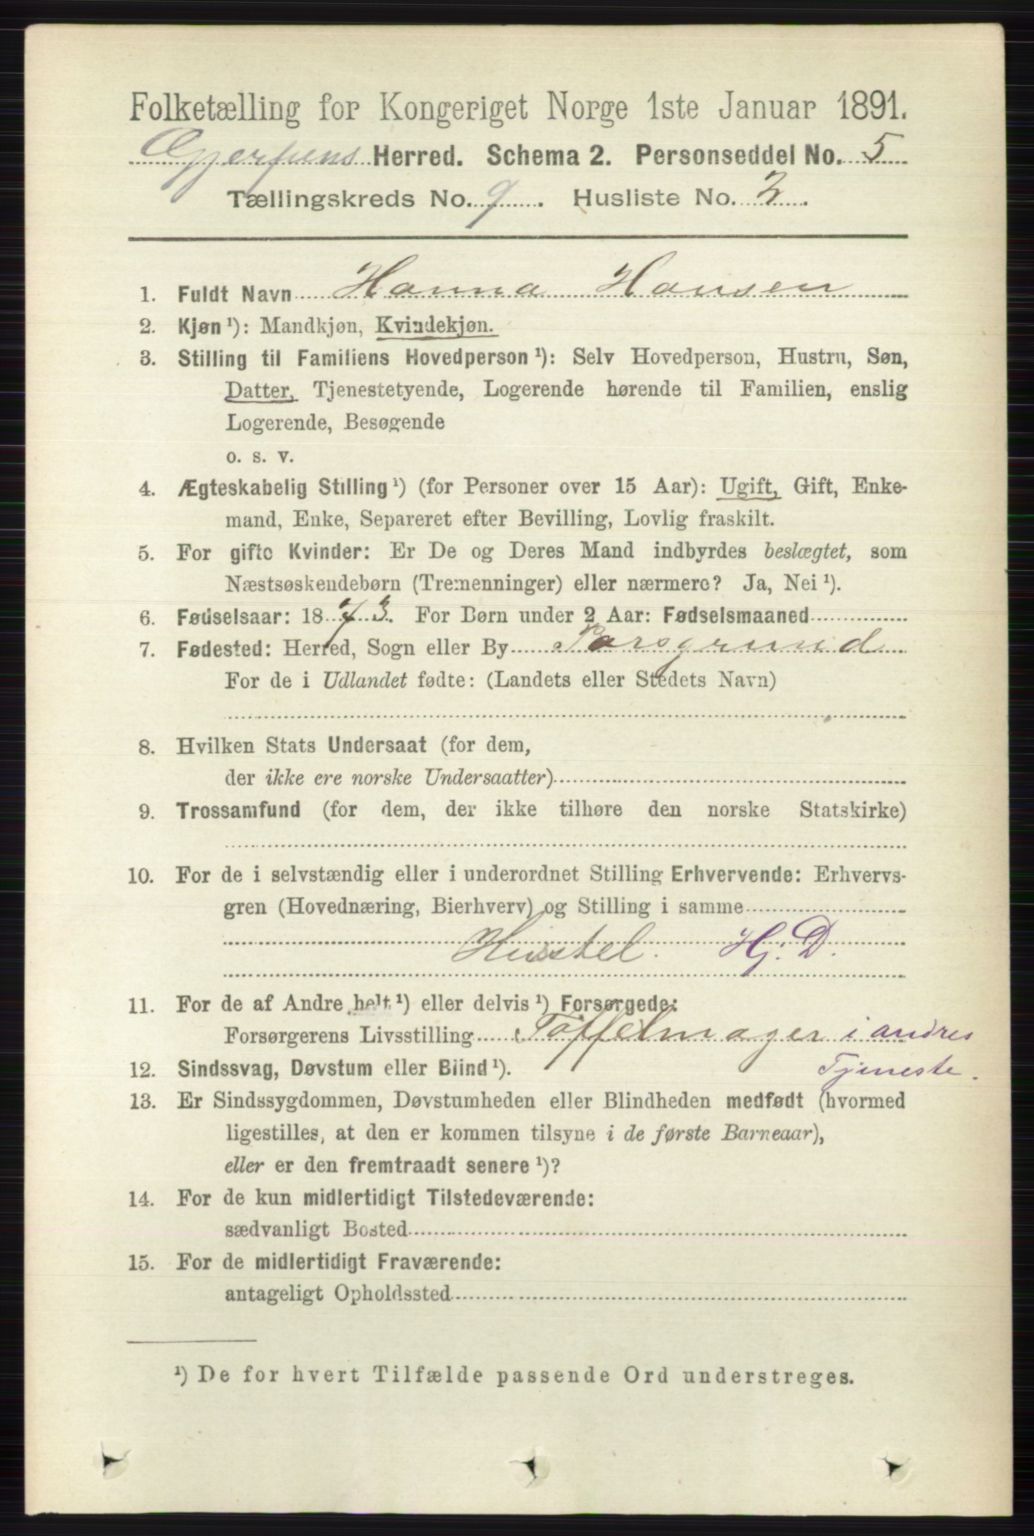 Folketælling for Kongeriget Norge 1ste Januar 1891.
Gjerpens Herred. Schema 2. Personseddel No. 5
Tællingskreds No. 9. Husliste No. 2.
1. Fuldt Navn Hanna Hansen
2. Kjøn¹): Mandkjøn, Kvindekjøn.
3. Stilling til Familiens Hovedperson¹): Selv Hovedperson, Hustru, Søn,
Datter, Tjenestetyende, Logerende hørende til Familien, enslig
Logerende, Besøgende
o. s. v.
4. Ægteskabelig Stilling¹) (for Personer over 15 Aar): Ugift, Gift, Enke-
mand, Enke, Separeret efter Bevilling, Lovlig fraskilt.
5. For gifte Kvinder: Er De og Deres Mand indbyrdes beslægtet, som
Næstsøskendebørn (Tremenninger) eller nærmere? Ja, Nei¹).
6. Fødselsaar: 1873. For Børn under 2 Aar: Fødselsmaaned
7. Fødested: Herred, Sogn eller By Porsgrund
For de i Udlandet fødte: (Landets eller Stedets Navn)
8. Hvilken Stats Undersaat (for dem,
der ikke ere norske Undersaatter)
9. Trossamfund (for dem, der ikke tilhøre den norske Statskirke)
10. For de i selvstændig eller i underordnet Stilling Erhvervende: Erhvervs-
gren (Hovednæring, Bierhverv) og Stilling i samme
Husstel. Hj. D.
11. For de af Andre helt¹) eller delvis¹) Forsørgede:
Forsørgerens Livsstilling Tøffelmager i andres
12. Sindssvag, Døvstum eller Blind¹). Tjeneste.
13. Er Sindssygdommen, Døvstumheden eller Blindheden medfødt (hvormed
ligestilles, at den er kommen tilsyne i de første Barneaar),
eller er den fremtraadt senere¹)?
14. For de kun midlertidigt Tilstedeværende:
sædvanligt Bosted
15. For de midlertidigt Fraværende:
antageligt Opholdssted
¹) De for hvert Tilfælde passende Ord understreges.